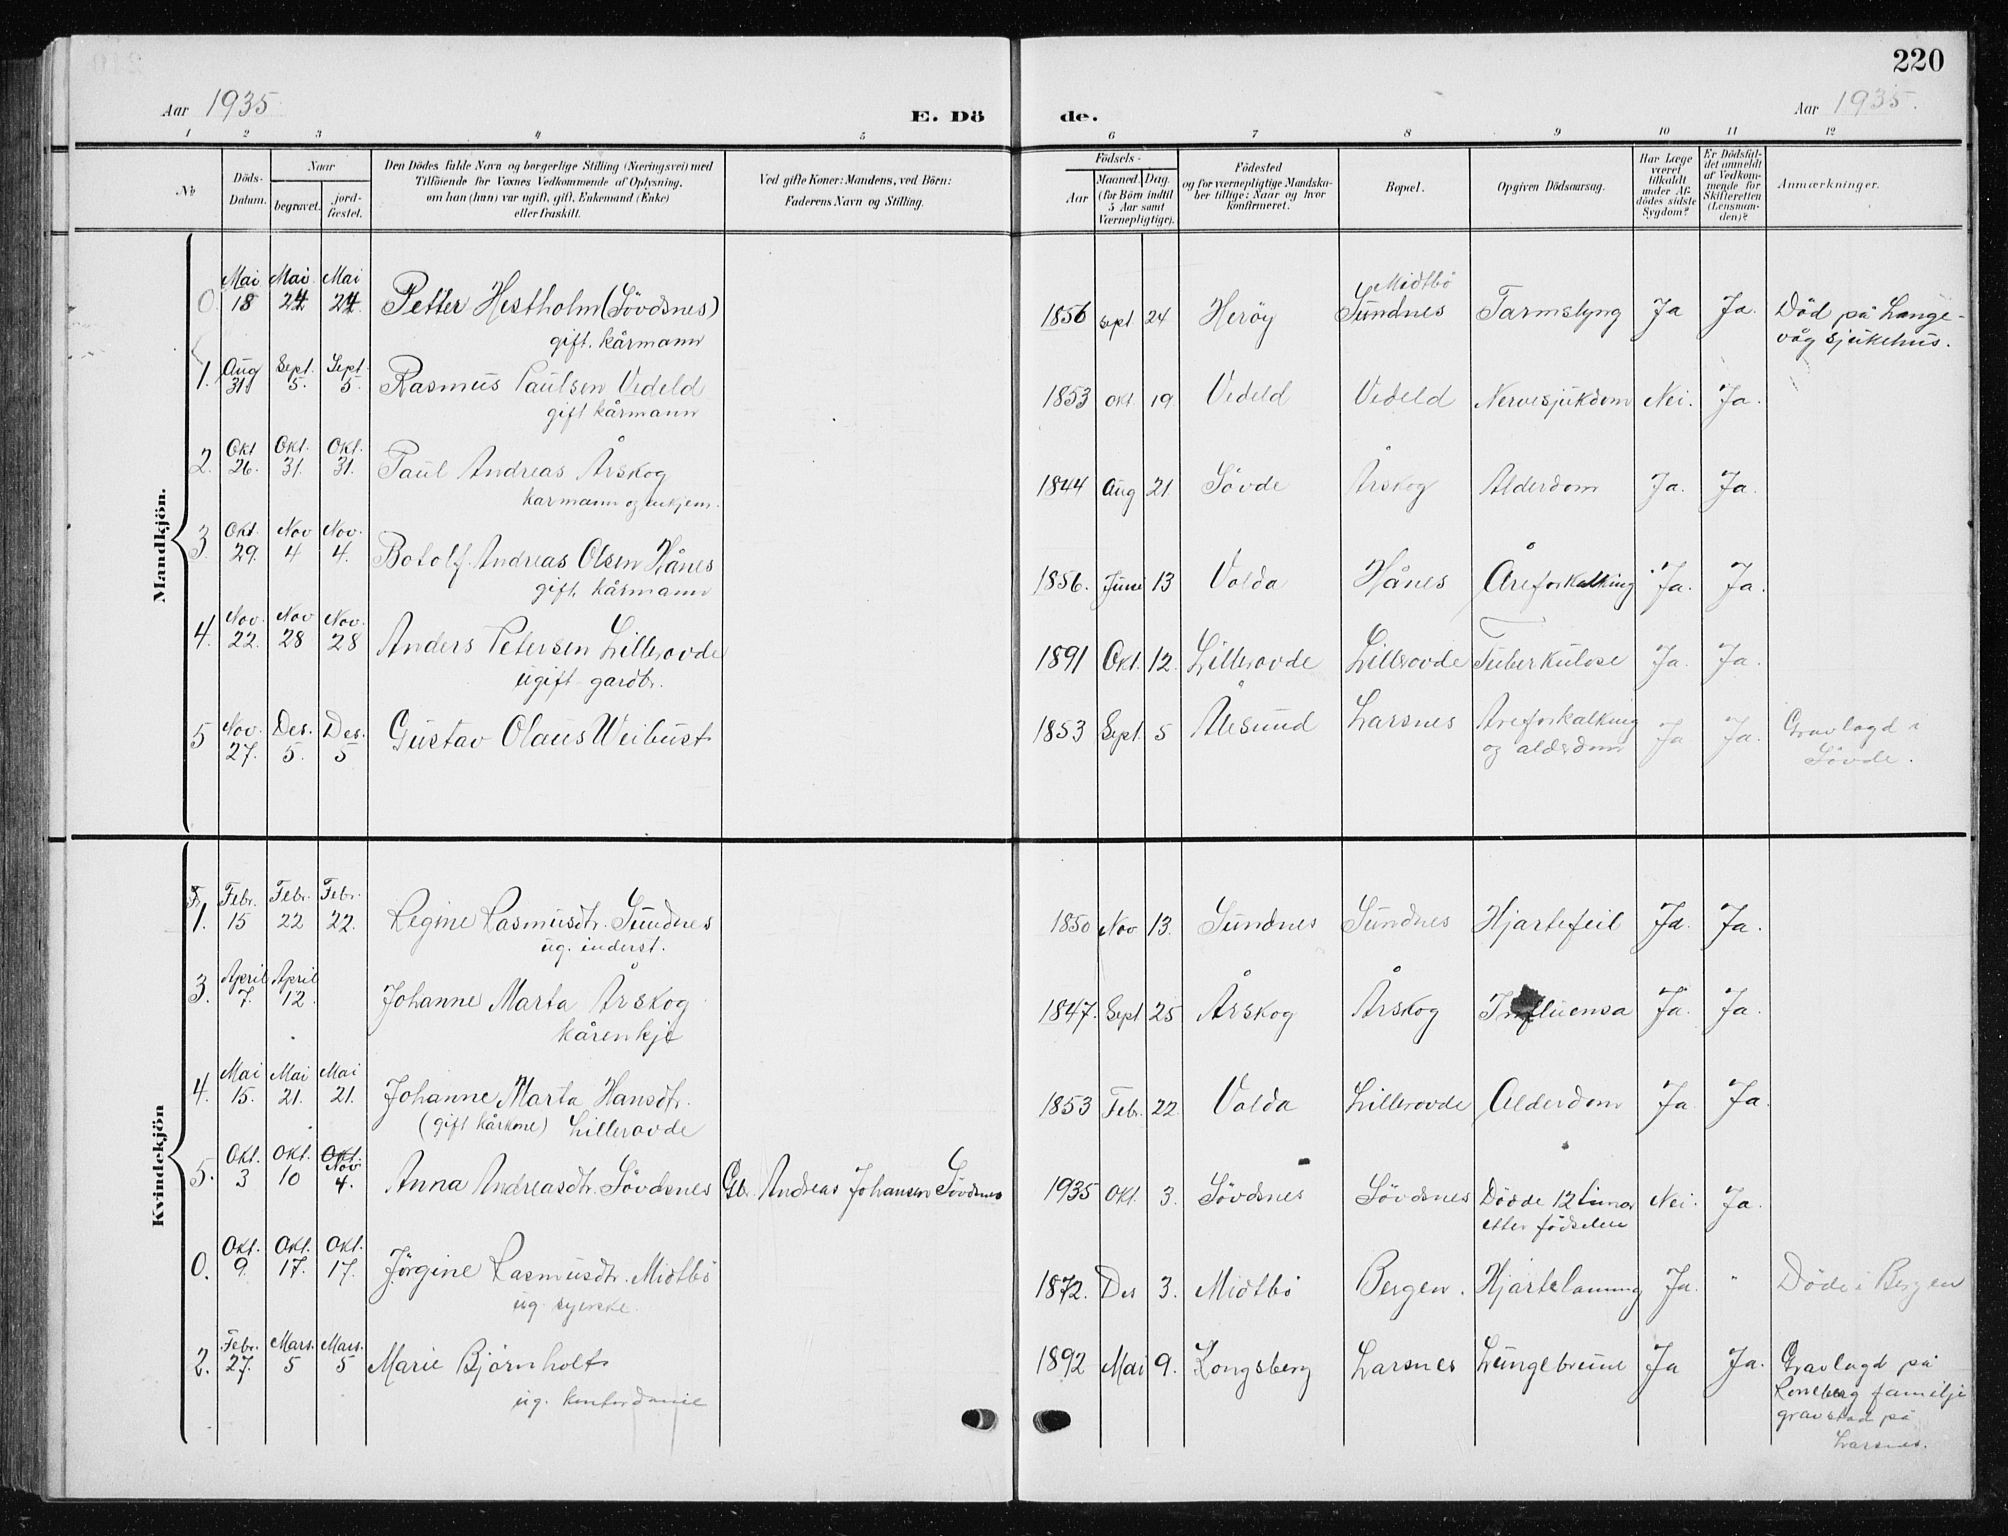 220
Aar 1935 E. Dö de. Aar 1935.
1 2 3 4 5 6 7 8 9 10 11 12
No
Döds-Datum.
Naar
begravet.
jord-fæstet.
Den Dödes fulde Navn og borgerlige Stilling (Næringsvei) med
Tilföiende for Voxnes Vedkommende af Oplysning,
om han (hun) var ugift, gift, Enkemand (Enke)
eller fraskilt.
Ved gifte Koner: Mandens, ved Börn:
Faderens Navn og Stilling.
Födsels-
Aar
Maaned. Dag.
(for Börn indtil
5 Aar samt
Værnepligtige).
Födested
og for værnepligtige Mandska-
ber tillige: Naar og hvor
konfirmeret.
Bopæl.
Opgiven Dödsaarsag.
Har Læge
været
tilkaldt
under Af-
dödes sidste
Sygdom?
Er Dödsfal-
det anmeldt
af Vedkom-
mende for
Skifteretten
(Lensman-
den)?
Anmærkninger.
Mandkjön.
Mai Mai Mai Midtbö
0 18 24 24 Petter Hestholm (Sövdsnes) 1856 Sept 24 Heröy Sundnes Tarmslyng Ja Ja. Död på Lange-
gift. kårmann våg sjukehus.
Aug Sept. Sept.
1. 31 5. 5. Rasmus Paulsen Vedeld 1853 Okt. 19 Vedeld Vedeld Nervesjukdom Nei. Ja.
gift kårmann
Okt Okt. Okt.
2. 26. 31. 31. Paul Andreas Årskog 1844 Aug 21 Sövde Årskog Alderdom Ja. Ja.
karmann og enkjem.
Okt. Nov Nov.
3. 29. 4 4. Botolf Andreas Olsen Hånes 1856. Juni 13 Volda Hånes Åreforkalking Ja. Ja.
gift. kårmann
Nov. Nov Nov.
4. 22. 28 28 Anders Petersen Lillerovde 1891 Okt. 12. Lillerovde Lillerovde Tuberkulose Ja. Ja.
ugift gardbr.
Nov. Des. Des.
5 27. 5. 5 Gustav Olaus Weibust 1853 Sept. 5 Ålesund Larsnes Åreforkalking Ja Ja. Gravlagd i
og alderdom Sövde.
Kvindekjön
Febr. Febr. Febr.
1. 15 22 22. Regine Rasmusdtr. Sundnes 1850 Nov 13. Sundnes Sundnes Hjartefeil Ja. Ja.
ug. inderst.
April April
3. 7. 12. Johanne Marta Årskog 1847. Sept 25 Årskog Årskog Influensa Ja. Ja.
kårenkje
Mai Mai Mai
4. 15. 21. 21. Johanne Marta Hansdtr. 1853 Feb. 22. Volda Lillerovde Alderdom Ja Ja.
(gift kårkone) Lillerovde
Okt. Okt. Okt. Nov
5. 3 10 4. Anna Andreasdtr. Sövdsnes Gbr. Andreas Johansen Sövdsnes 1935 Okt. 3. Sövdsnes Sövdsnes Dödde 12 timar Nei. Ja.
etter födselen
Okt. Okt. Okt.
0. 9. 17. 17. Jörgine Rasmusdtr. Midtbö 1872. Des 3. Midtbö Bergen. Hjartelamning Ja. " Döde i Bergen
ug. syerske.
Febr. Mars. Mars.
2. 27. 5 5 Marie Björnholt 1892 Mai 9. Kongsberg Larsnes Lungebrune Ja Ja. Gravlagd på
ug. kontordame familje
gravstad på
Larsnes.